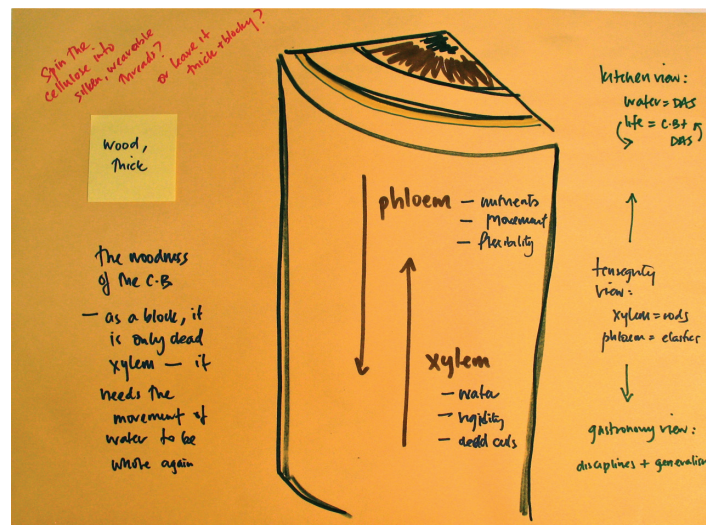 Spin the
cellulose into
silken, wearable
threads?
or leave it
thick + blocky?
wood,
thick
the woodness
of the C.B
— as a block, it
is only dead
xylem — it
needs the
movement of
water to be
whole again
phloem — nutrients
— movement
— flexibility
xylem
— water
— rigidity
— dead cells
kitchen view:
water = DAS
life = C.B +
DAS
tensegrity
view:
xylem = rods
phloem = elastics
gastronomy view:
disciplines + generalism